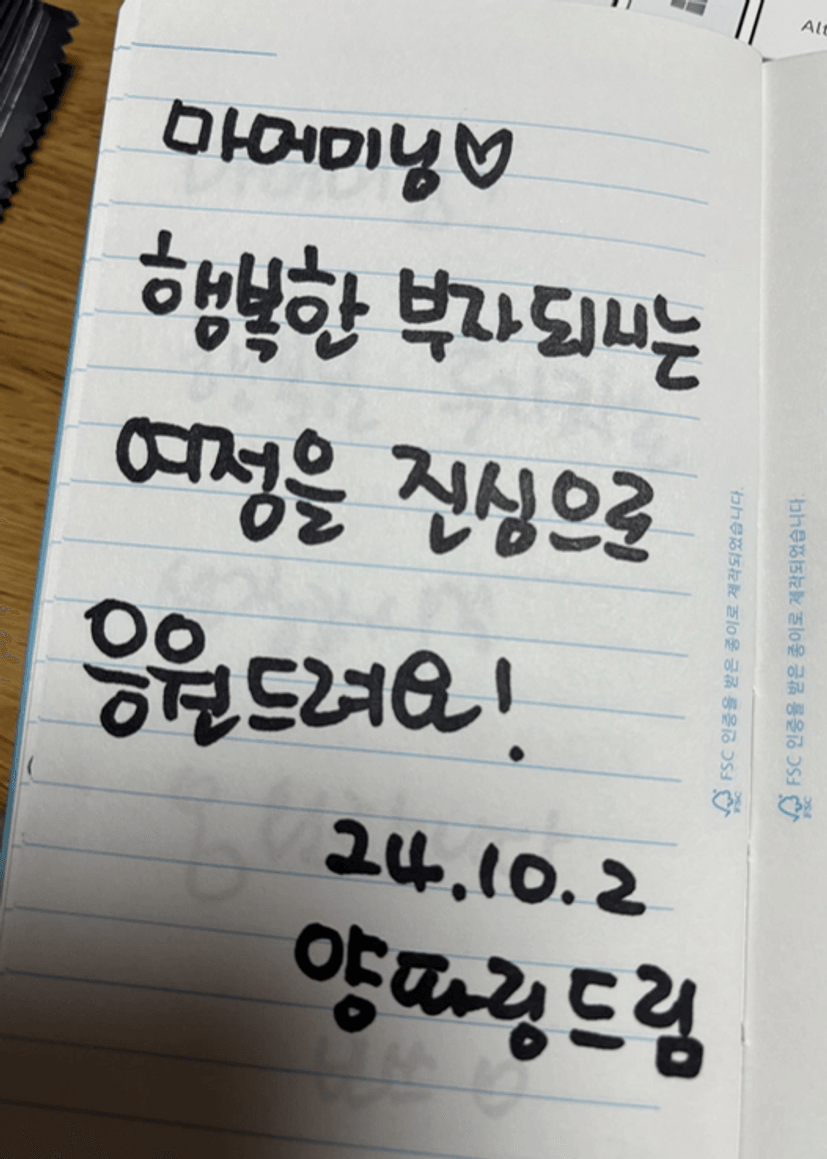 마머미닝♡
행복한 부자되시는
여정을 진심으로
응원드려요!
24.10.2
양파링드림
FSC 인증을 받은 종이로 제작되었습니다.
FSC
FSC 인증을 받은 종이로 제작되었습니다.
FSC
Alt